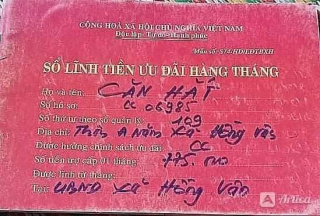 CỘNG HOÀ XÃ HỘI CHỦ NGHĨA VIỆT NAM
Độc lập - Tự do - Hạnh phúc
Mẫu số: S74-HD/LĐTBXH
SỔ LĨNH TIỀN ƯU ĐÃI HÀNG THÁNG
Họ và tên: CĂN HẤT
Số hồ sơ: CC 06985
Số thứ tự theo sổ quản lý: 109
Địa chỉ: Thôn A Năm xã Hồng Vân
Được hưởng chính sách ưu đãi: CC
Số tiền trợ cấp 01 tháng: 775.000
Được lĩnh từ tháng:
Tại: UBND xã Hồng Vân
Artica